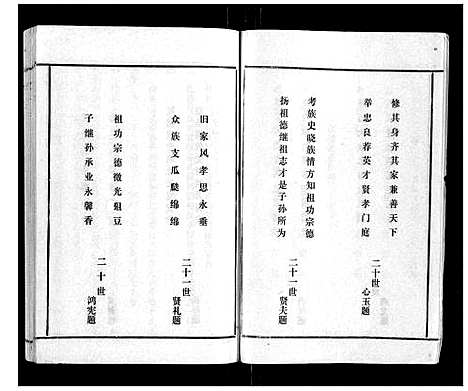 修其身齐其家兼善天下
举忠良荐英才贤孝门庭
二十世
心玉题
考族史晓族情方知祖功宗德
扬祖德继祖志才是子孙所为
二十一世
贤夫题
旧家风孝思永垂
众族支瓜瓞绵绵
二十一世
贤礼题
祖功宗德微光俎豆
子继孙承业永馨香
二十世
鸿宪题